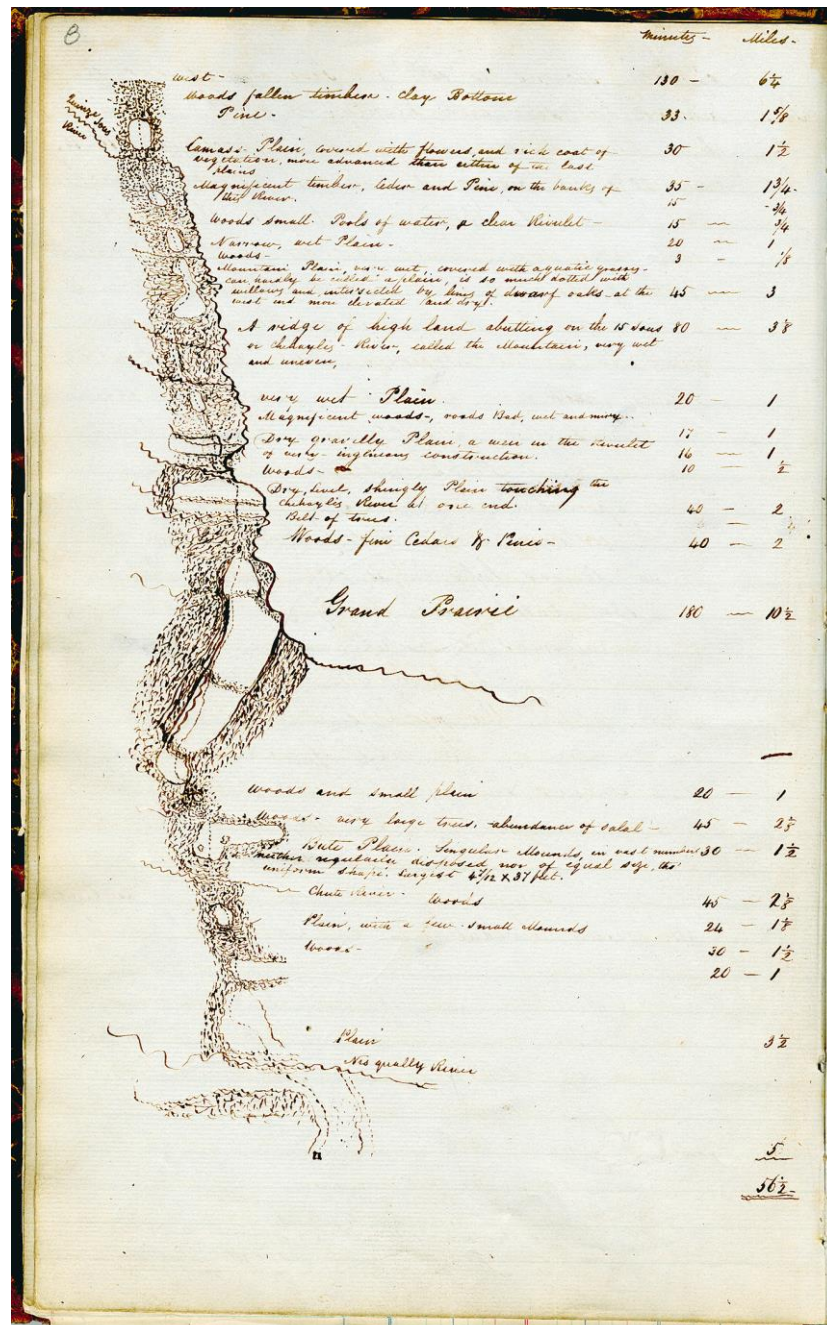 8
Minutes - Miles -
west - 130 - 6 1/4
Woods fallen timber - clay Bottom
Pine - 33 1 5/8
Quinze Sous River
Camass Plain, covered with flowers, and rich coat of 30 1 1/2
vegetation, more advanced than either of the last
plains
Magnificent timber, Ceder and Pine, on the banks of 35 - 1 3/4 -
this River. 15 - 3/4
Woods small Pools of water, a clear Rivulet - 15 - 3/4
Narrow, wet Plain - 20 - 1
Woods - 3 - 1/8
Mountain Plain, very wet, covered with aquatic grasses -
can hardly be called a plain, is so much dotted with
willows and intersected by lines of dwarf oaks - at the 45 - 3
west end more elevated and dry.
A ridge of high land abutting on the 15 Sous 80 -
or River, called the Mountain, very wet
and uneven,
very wet Plain. 20 - 1
Magnificent woods -, roads Bad, wet and miry. -
Dry gravelly Plain, a weir in the Rivulet 17 - 1
of very - ingenious construction. 16 - 1
Woods - 10 - 1/2
Dry, level, shingly Plain touching the
River at one end. 40 - 2
Belt of trees.
Woods - fine Cedars & Pines - 40 - 2
Grand Prairie 180 - 10 1/2
woods and small plain 20 - 1
Woods - very large trees, abundance of salal - 45 -
Bute Plain. Singular Mounds, in vast number 30 - 1 1/2
neither regularly disposed nor of equal size, tho'
uniform shape. Largest X 37 feet.
Chute River - Woods 45 -
Plain, with a few small Mounds 24 -
Woods - 30 - 1 1/2
20 - 1
Plain 3 1/2
Nesqually River
5
56 1/2 -